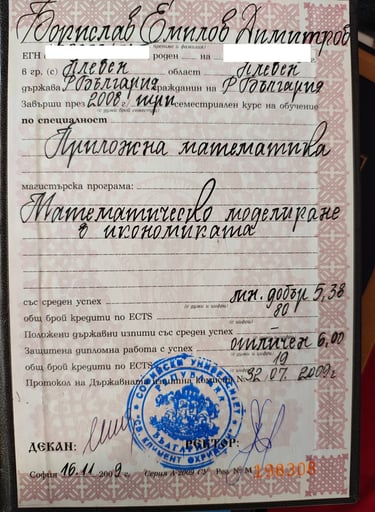 Борислав Емилов Димитров
(лично, презиме и фамилия)
ЕГН роден на г.
в гр. (с) Плевен област Плевен
държава Р. България гражданин на Р. България
Завърши през 2008 г. три семестриален курс на обучение
(с думи, брой семестри)
по специалност
Приложна математика
магистърска програма:
Математическо моделиране
в икономиката
със среден успех мн. добър 5,38
(с думи и цифри)
общ брой кредити по ECTS 80
Положени държавни изпити със среден успех
(с думи и цифри)
Защитена дипломна работа с успех отличен 6,00
(с думи и цифри)
общ брой кредити по ECTS 19
Протокол на Държавната изпитна комисия № 32 07. 2009 г.
СОФИЙСКИ УНИВЕРСИТЕТ
СВ. КЛИМЕНТ ОХРИДСКИ
РЕПУБЛИКА БЪЛГАРИЯ
ДЕКАН: РЕКТОР:
София 16.11 2009 г. Серия А-2009 СУ Рег. № М 198308